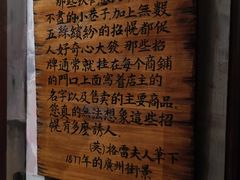 那些狹窄
不盡的小巷子加上無數
五綵繽紛的招幌都促
人好奇心大發 那些招
牌通常就挂在每个商鋪
的門口上面寫着店主的
名字以及售卖的主要商品.
您真的無法想象這些招
幌有多麼誘人.
(英)格雷夫人筆下
1877年的廣州街景